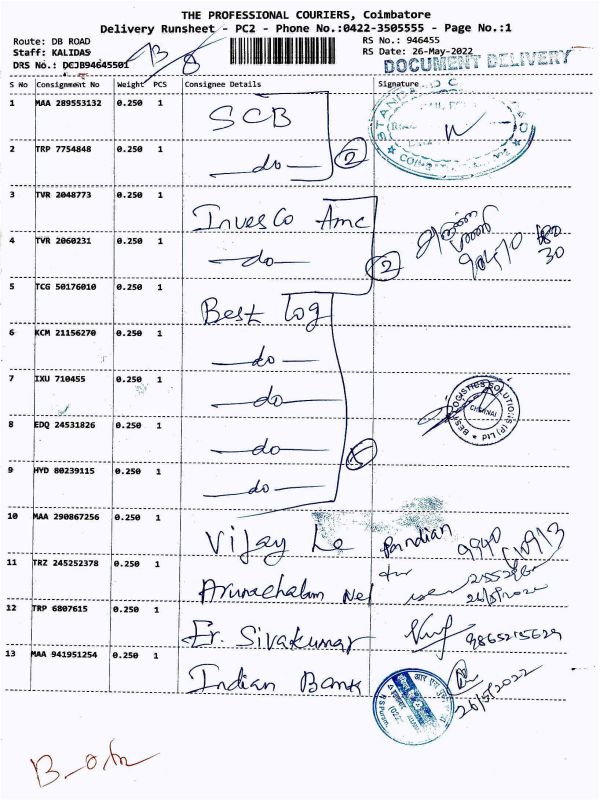 THE PROFESSIONAL COURIERS, Coimbatore
Delivery Runsheet - PC2 - Phone No.:0422-3505555 - Page No.:1
Route: DB ROAD
RS No.: 946455
Staff: KALIDAS
RS Date: 26-May-2022
DRS No.: DCJB94645501
DOCUMENT DELIVERY
S No Consignment No Weight PCS Consignee Details Signature
1 MAA 289553132 0.250 1 SCB
2 TRP 7754848 0.250 1 do 2
3 TVR 2048773 0.250 1 Invesco Amc
4 TVR 2060231 0.250 1 do 2
5 TCG 50176010 0.250 1 Best Log
6 KCM 21156270 0.250 1 do
7 IXU 710455 0.250 1 do
8 EDQ 24531826 0.250 1 do
9 HYD 80239115 0.250 1 do
BEST LOGISTICS SOLUTIONS (P) Ltd
CHENNAI
10 MAA 290867256 0.250 1 Vijay Pandian
11 TRZ 245252378 0.250 1 Arunachalam
12 TRP 6807615 0.250 1 Er. Sivakumar 9865215629
13 MAA 941951254 0.250 1 Indian Bank 26/5/2022